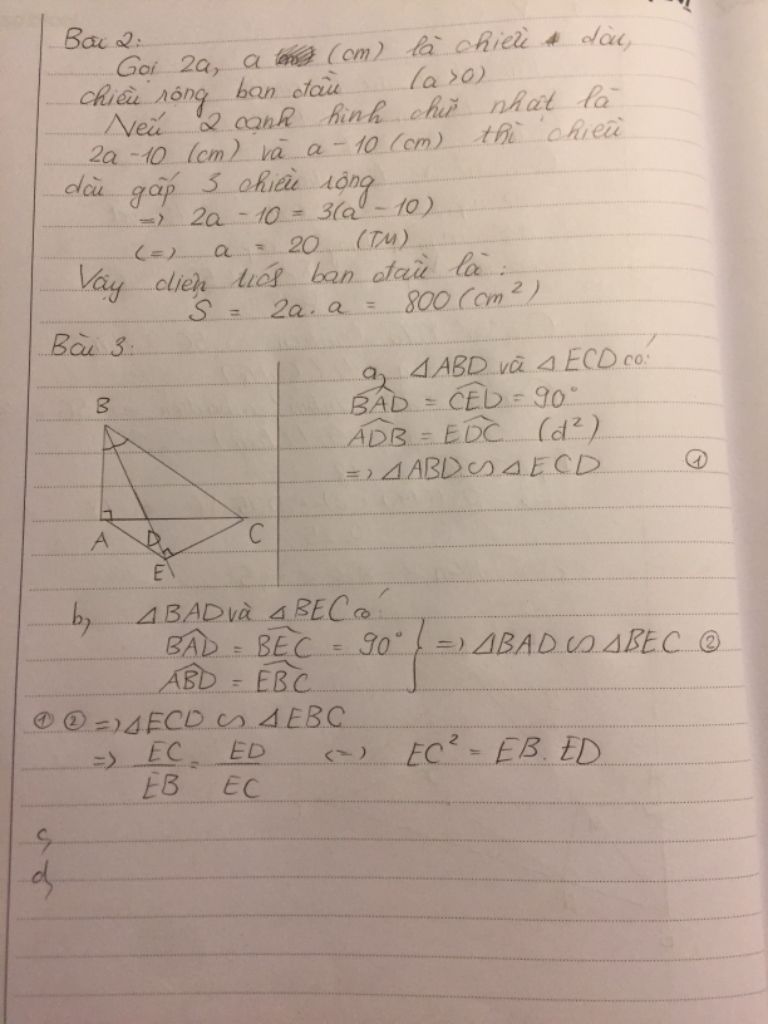 Bài 2:
Gọi 2a, a (cm) là chiều dài,
chiều rộng ban đầu (a >0)
Nếu 2 cạnh hình chữ nhật là
2a -10 (cm) và a - 10 (cm) thì chiều
dài gấp 3 chiều rộng
=> 2a - 10 = 3(a - 10)
(=) a = 20 (TM)
Vậy diện tích ban đầu là:
S = 2a. a = 800 (cm²)
Bài 3:
a, ΔABD và ΔECD có:
BAD = CED = 90°
ADB = EDC (d²)
=> ΔABD ∽ ΔECD ①
B
A
D
C
E
b, ΔBAD và ΔBEC có:
BAD = BEC = 90° } => ΔBAD ∽ ΔBEC ②
ABD = EBC
① ② => ΔECD ∽ ΔEBC
=> EC/EB = ED/EC <=> EC² = EB. ED
c,
d,